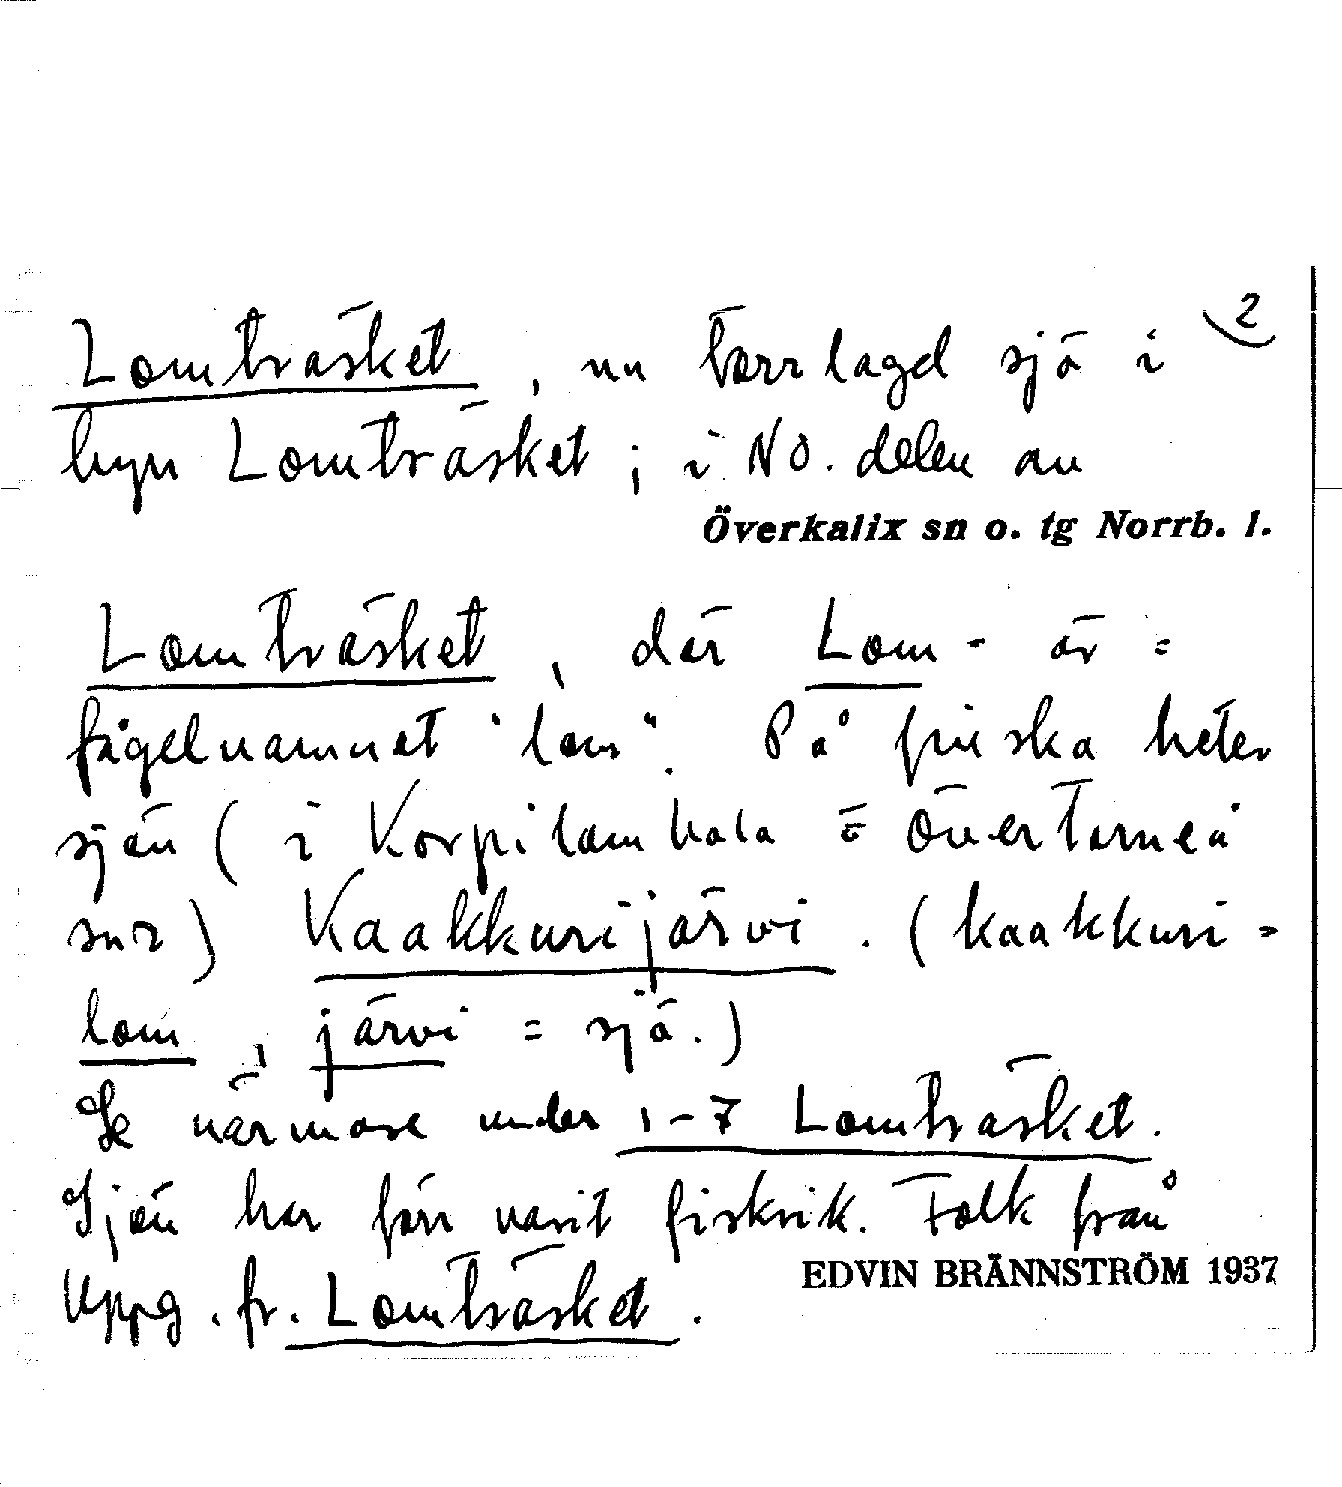 2
Lomträsket, nu torrlagd sjö i
byn Lomträsket; i NO. delen av
Överkalix sn o. tg Norrb. l.
Lomträsket, där Lom- är =
fågelnamnet "lom". På finska heter
sjön (i Korpilombolo o Övertorneå
snr) Kaakkurijärvi. (kaakkuri =
lom, järvi = sjö.)
Se närmare under 1-7 Lomträsket.
Sjön har förr varit fiskrik. Folk från
EDVIN BRÄNNSTRÖM 1937
Uppg. fr. Lomträsket.